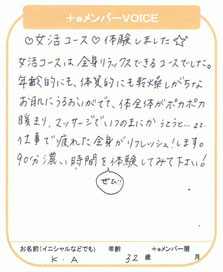 +eメンバーVOICE
♡女活コース♡体験しました☆
女活コースは、全身リラックスできるコースでした。
年齢的にも、体質的にも乾燥しがちな
お肌にうるおいがでて、体全体がポカポカ
暖まり、マッサージでいつのまにかうとうと…zz
仕事で疲れた全身がリフレッシュします。
90分濃い時間を体験してみて下さい!
ぜひ
お名前(イニシャルなどでも) 年齢 +eメンバー暦
K.A 32歳 月